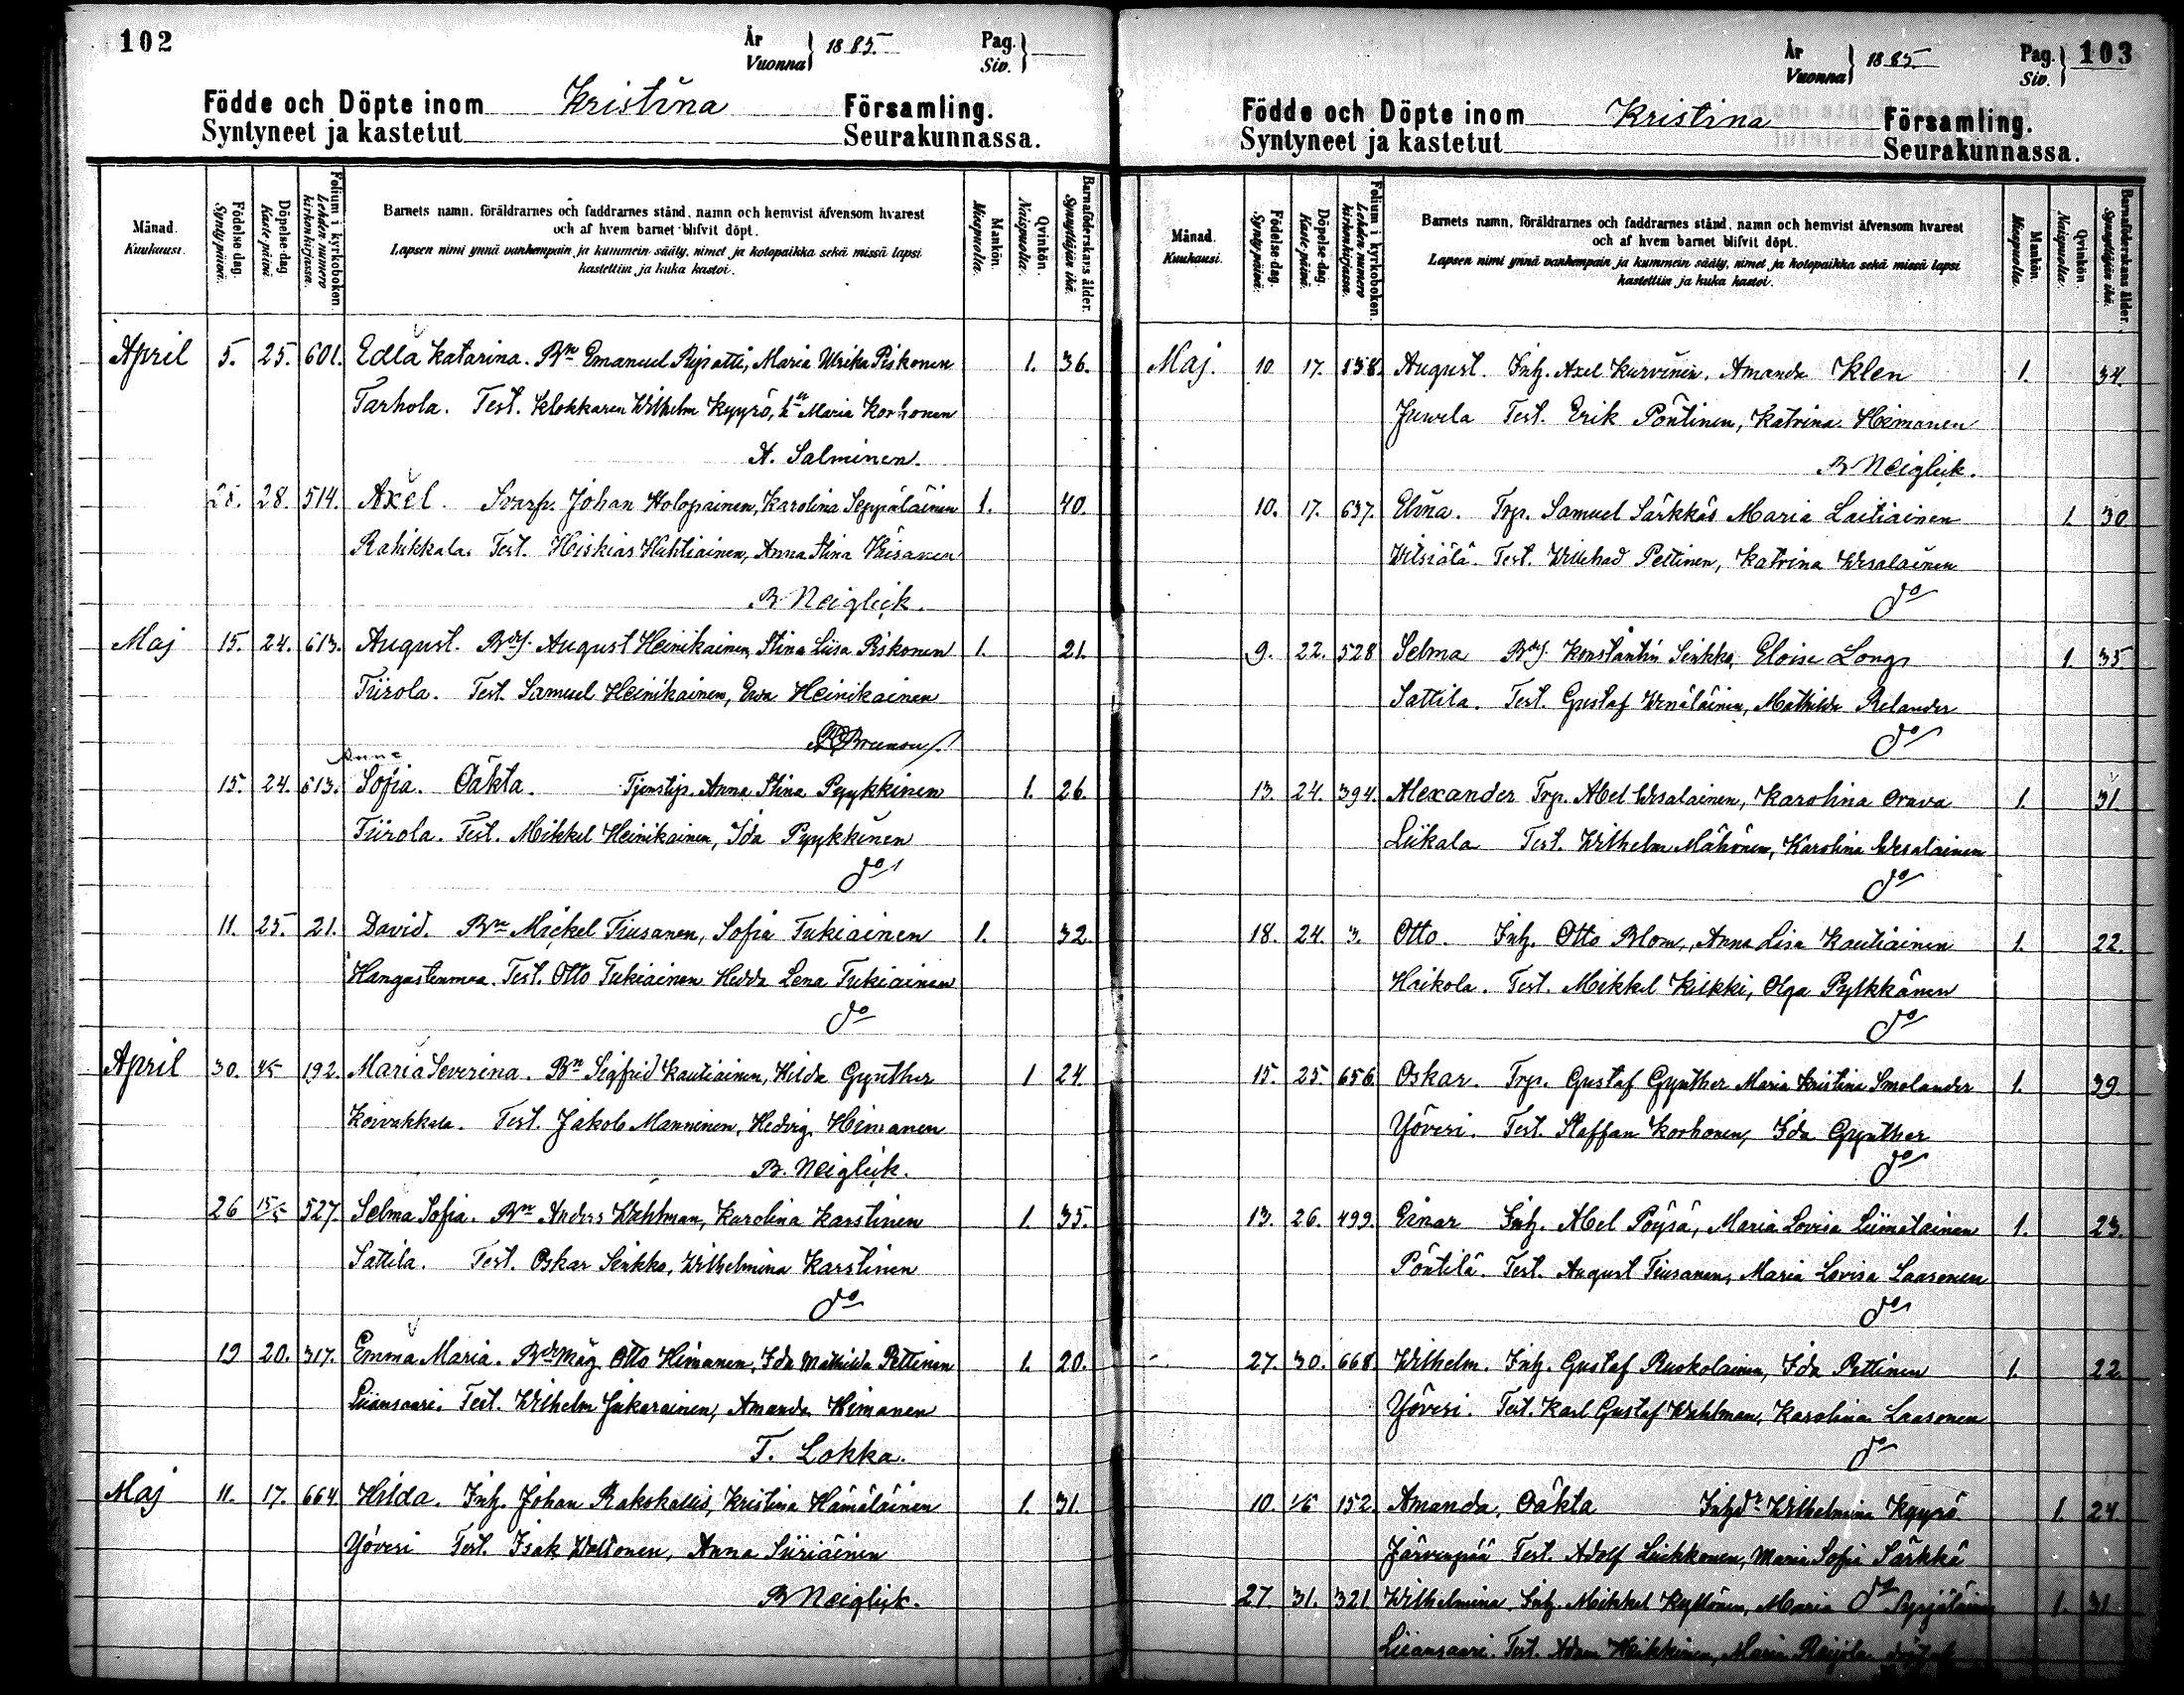 102
År
Vuonna } 1885.
Pag.
Siv. }
Födde och Döpte inom Kristina Församling.
Syntyneet ja kastetut Seurakunnassa.
Månad.
Kuukausi.
Födelse-dag.
Synty-päivä.
Döpelse-dag.
Kaste-päivä.
Folium i kyrkoboken.
Lehden numero kirkonkirjassa.
Barnets namn, föräldrarnes och faddrarnes stånd, namn och hemvist äfvensom hvarest
och af hvem barnet blifvit döpt.
Lapsen nimi ynnä vanhempain ja kummein sääty, nimet ja kotopaikka sekä missä lapsi
kastettiin ja kuka kastoi.
Mankön.
Miespuolta.
Qvinkön.
Naispuolta.
Barnaföderskans ålder.
Synnyttäjän ikä.
April 5. 25. 601. Edla Katarina. Bn Emanuel Ripatti, Maria Ulrika Piskonen 1. 36.
Tarhola. Test. Klokkaren Wilhelm Kyyrö, hu Maria Korhonen
A. Salminen.
28. 514. Axel. Johan Holopainen, Karolina Seppäläinen 1. 40.
Rahikkala. Test. Heiskias Huhtiainen, Anna Stina
B. Neiglick.
Maj 15. 24. 613. August. Bdsj. August Heinikainen, Stina Liisa Piskonen 1. 21.
Tiirola. Test. Samuel Heinikainen, Ewa Heinikainen
Anna
15. 24. 613. Sofia. Oäkta. Tjenstip. Anna Stina Pyykkinen 1. 26.
Tiirola. Test. Mikkel Heinikainen, Ida Pyykkinen
do
11. 25. 21. David. Bn Mickel Tiusanen, Sofia Tukiainen 1. 32.
Hangastenmaa. Test. Otto Tukiainen Hedda Lena Tukiainen
do
April 30. 4/5 192. Maria Severina. Bn Sigfrid Kautiainen, Hilda Gynther 1 24.
Koivakkala. Test. Jakob Manninen, Hedvig Heimanen
B. Neiglick.
26 15/5 527. Selma Sofia. Bn Anders Wahlman, Karolina Karstinen 1. 35.
Sattila. Test. Oskar Sinkko, Wilhelmina Karstinen
do
19 20. 317. Emma Maria. Bdrmåg Otto Himanen, Ida Mathilda Pettinen 1. 20.
Liiansaari. Test. Wilhelm Jukarainen, Amanda Himanen
T. Lokka.
Maj 11. 17. 664. Hilda. Inh. Johan Rakokallio, Kristina Hämäläinen 1. 31.
Yöveri Test. Isak Waltonen, Anna Siiriäinen
B Neiglick.
År
Vuonna } 1885.
Pag.
Siv. } 103
Födde och Döpte inom Kristina Församling.
Syntyneet ja kastetut Seurakunnassa.
Månad.
Kuukausi.
Födelse-dag.
Synty-päivä.
Döpelse-dag.
Kaste-päivä.
Folium i kyrkoboken.
Lehden numero kirkonkirjassa.
Barnets namn, föräldrarnes och faddrarnes stånd, namn och hemvist äfvensom hvarest
och af hvem barnet blifvit döpt.
Lapsen nimi ynnä vanhempain ja kummein sääty, nimet ja kotopaikka sekä missä lapsi
kastettiin ja kuka kastoi.
Mankön.
Miespuolta.
Qvinkön.
Naispuolta.
Barnaföderskans ålder.
Synnyttäjän ikä.
Maj. 10 17. 138. August. Inh. Axel Kurvinen, Amanda Klen 1. 34.
Juurela Test. Erik Pöntinen, Katrina Heimonen
B Neiglick.
10. 17. 637. Elina. Trp. Samuel Särkkäs Maria Laitiainen 1. 30
Wilsiälä. Test. Willehad Pettinen, Katrina Wesalainen
do
9. 22. 528 Selma Bdsj. Konstantin Sinkko, Eloise Long 1. 35
Sattila. Test. Gustaf Wenäläinen, Mathilda Relander
do
13. 24. 394. Alexander Trp. Abel Wesalainen, Karolina Orava 1. 31
Liikala Test. Wilhelm Mähönen, Karolina Wesalainen
do
18. 24. 3. Otto. Inh. Otto Blom, Anna Lisa Kautiainen 1. 22.
Haikola. Test. Mikkel Kilkki, Olga Pylkkänen
do
15. 25. 656. Oskar. Trp. Gustaf Gynther Maria Kristina Smolander 1. 39.
Yöveri. Test. Staffan Korhonen, Ida Gynther
do
13. 26. 499. Einar Inh. Abel Pöysä, Maria Lovisa Liimatainen 1. 23.
Pöntilä. Test. August Tiusanen, Maria Lovisa Laasonen
do
27. 30. 668. Wilhelm. Inh. Gustaf Ruokolainen, Ida Pettinen 1. 22
Yöveri. Test. Karl Gustaf Wahlman, Karolina Laasonen
do
10. 1/6 152. Amanda, Oäkta Inhdr Wilhelmina Kyyrö 1. 24.
Järvenpää Test. Adolf Luikkonen, Maria Sofia Särkkä
do
27. 31. 321. Wilhelmina Inh. Mikkel Kyllönen, Maria 1. 31
Liiansaari. Test. Adam Heikkinen, Maria